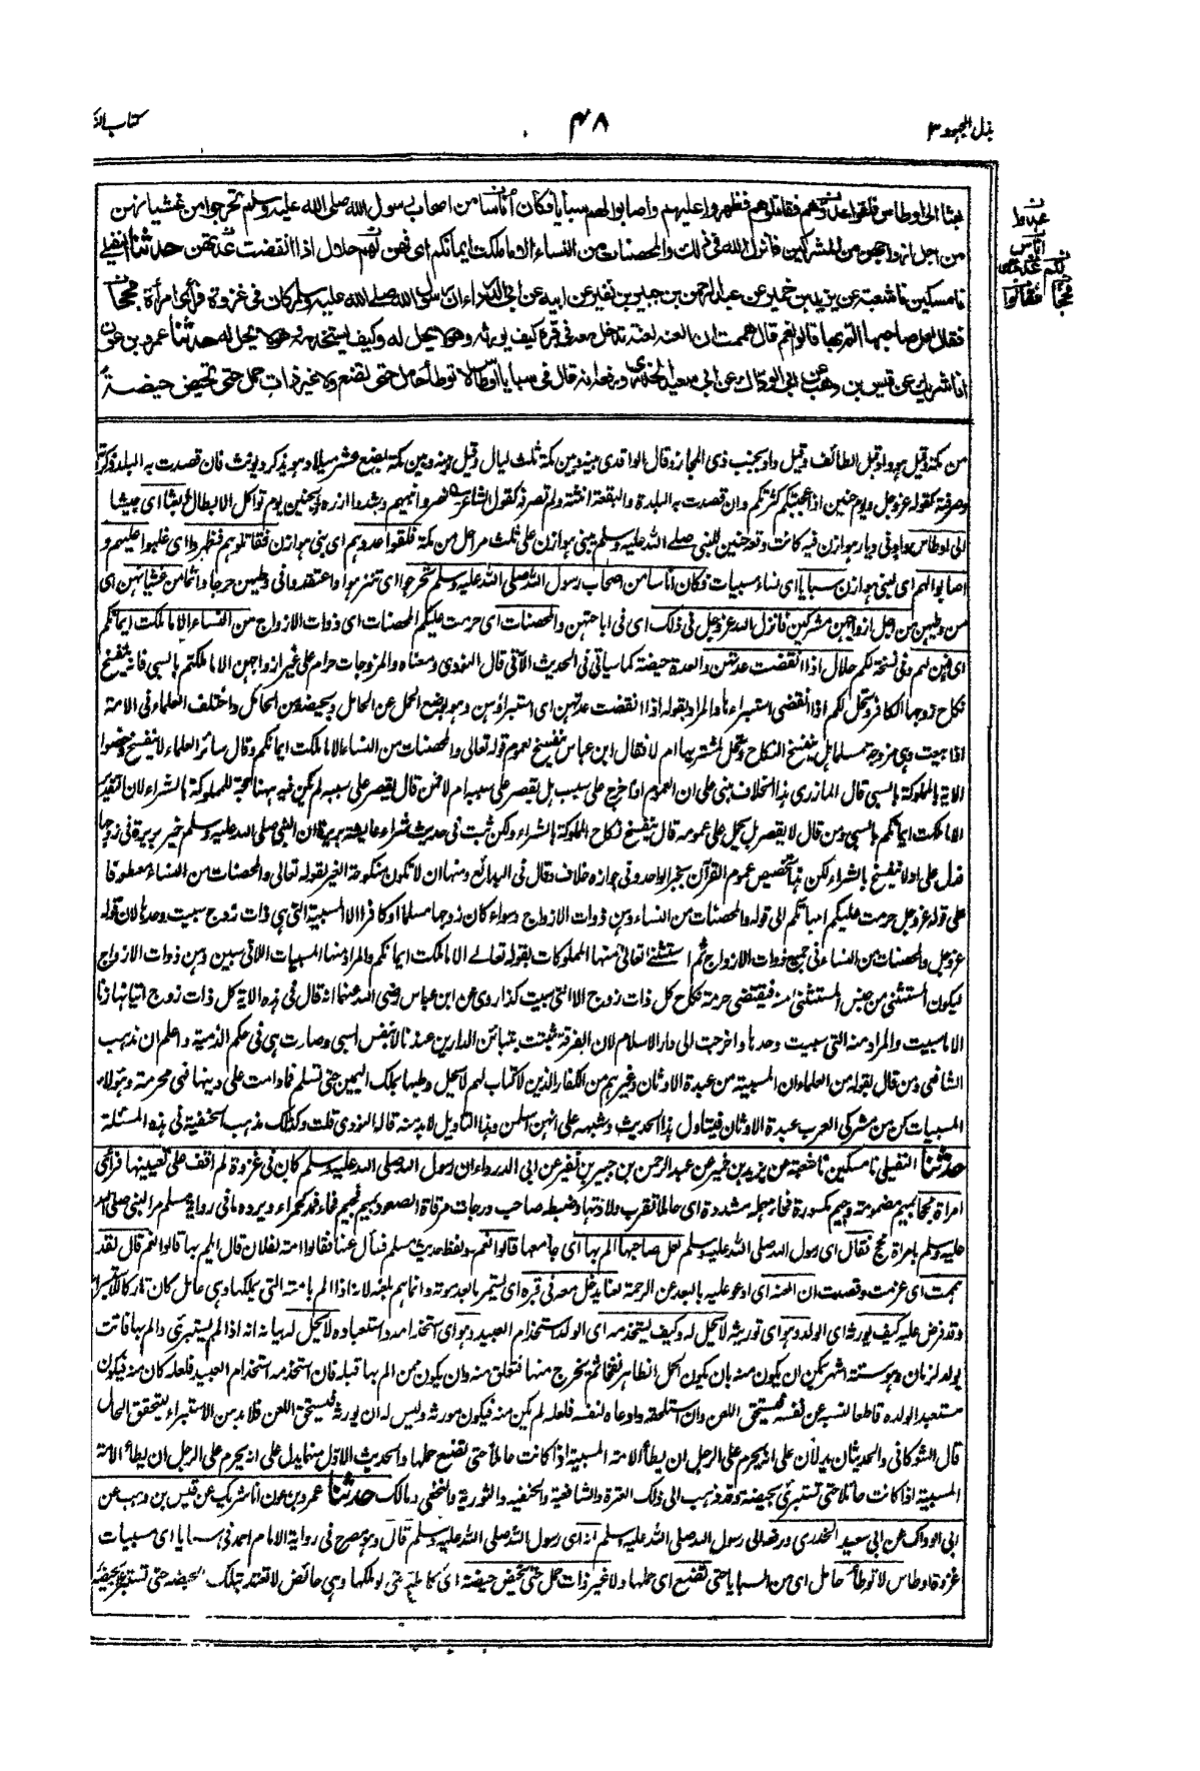 بذل المجهود ٣
٤٨
كتاب
بعثا الى اوطاس فلقوا عدوهم فقاتلوهم فظهروا عليهم واصابوا لهم سبايا فكان اناسا من اصحاب رسول الله صلى الله عليه وسلم تحرجوا من غشيانهن
من اجل ازواجهن من المشركين فانزل الله فى ذلك والمحصنات من النساء الا ما ملكت ايمانكم اى فهن لهم حلال اذا انقضت عدتهن حدثنا النفيلى
نا مسكين نا شعبة عن يزيد بن خمير عن عبد الرحمن بن جبير بن نفير عن ابيه عن ابى الدرداء ان رسول الله صلى الله عليه وسلم كان فى غزوة فرأى امرأة مجحا
فقال لعل صاحبها الم بها قالوا نعم قال هممت ان العنه لعنة تدخل معه فى قبره كيف يورثه وهو لا يحل له وكيف يستخدمه وهو لا يحل له حدثنا عمرو بن عون
انا شريك عن قيس بن وهب عن ابى الوداك عن ابى سعيد الخدرى ورفعه انه قال فى سبايا اوطاس لا توطأ حامل حتى تضع ولا غير ذات حمل حتى تحيض حيضة
اناس
لكم
من مكة وقيل هو واد قبل الطائف وقيل واد بجنب ذى المجاز وقال الواقدى بينه وبين مكة ثلث ليال وقيل بينه وبين مكة بضعة عشر ميلا وهو يذكر ويؤنث فان قصدت به البلد ذكرته
وصرفته كقوله عز وجل ويوم حنين اذ اعجبتكم كثرتكم وان قصدت به البلدة والبقعة انثته ولم تصرفه كقول الشاعر نصروا نبيهم وشدوا ازره بحنين يوم تواكل الابطال بعثا اى جيشا
الى اوطاس واد فى ديار هوازن فيه كانت وقعة حنين للنبى صلى الله عليه وسلم ببنى هوازن على ثلث مراحل من مكة فلقوا عدوهم اى بنى هوازن فقاتلوهم فظهروا اى غلبوا عليهم و
اصابوا لهم اى لبنى هوازن سبايا اى نساء مسبيات فكان اناسا من اصحاب رسول الله صلى الله عليه وسلم تحرجوا اى تنزهوا واعتقدوا فى وطيهن حرجا واثما من غشيانهن اى
من وطيهن من اجل ازواجهن مشركين فانزل الله عز وجل فى ذلك اى فى اباحتهن والمحصنات اى حرمت عليكم المحصنات اى ذوات الازواج من النساء الا ما ملكت ايمانكم
اى فهن لهم وفى نسخة لكم حلال اذا انقضت عدتهن والعدة حيضة كما سياتى فى الحديث الآتى قال النووى ومعناه والمزوجات حرام على غير ازواجهن الا ما ملكتم بالسبى فانه ينفسخ
نكاح زوجها الكافر وتحل لكم اذا انقضى استبراءها والمراد بقوله اذا انقضت عدتهن اى استبراؤهن وهو بوضع الحمل عن الحامل وبحيضة من الحائل واختلف العلماء فى الامة
اذا بيعت وهى مزوجة مسلما هل ينفسخ النكاح وتحل لمشتريها ام لا فقال ابن عباس ينفسخ لعموم قوله تعالى والمحصنات من النساء الا ما ملكت ايمانكم وقال سائر العلماء لا ينفسخ وخصوا
الاية بالمملوكة بالسبى قال المازرى هذا الخلاف بنى على ان العموم اذا خرج على سبب هل يقصر على سببه ام لا فمن قال يقصر على سببه لم يكن فيه ههنا حجة للمملوكة بالشراء لان التقدير
الا ما ملكت ايمانكم بالسبى ومن قال لا يقصر بل يحمل على عمومه قال ينفسخ نكاح المملوكة بالشراء ولكن ثبت فى حديث شراء عائشة بريرة ان النبى صلى الله عليه وسلم خير بريرة فى زوجها
فدل على انه لا ينفسخ بالشراء لكن هذا تخصيص عموم القرآن بخبر الواحد وفى جوازه خلاف وقال فى البدائع ومنها ان لا تكون منكوحة الغير لقوله تعالى والمحصنات من النساء معطوفا
على قوله عز وجل حرمت عليكم امهاتكم الى قوله والمحصنات من النساء وهن ذوات الازواج وسواء كان زوجها مسلما او كافرا الا المسبية التى هى ذات زوج سبيت وحدها لان قوله
عز وجل والمحصنات من النساء فى جميع ذوات الازواج ثم استثنى تعالى منها المملوكات بقوله تعالى الا ما ملكت ايمانكم والمراد منها المسبيات اللاتى سبين وهن ذوات الازواج
ليكون المستثنى من جنس المستثنى منه فيقتضى حرمة نكاح كل ذات زوج الا التى سبيت كذا روى عن ابن عباس رضى الله عنهما انه قال فى هذه الاية كل ذات زوج اتيانها زنا
الا ما سبيت والمراد منه التى سبيت وحدها واخرجت الى دار الاسلام لان الفرقة ثبتت بتباين الدارين عندنا لا بنفس السبى وصارت هى فى حكم الذمية واعلم ان مذهب
الشافعى ومن قال بقوله من العلماء ان المسبية من عبدة الاوثان وغيرهم من الكفار الذين لا كتاب لهم لا يحل وطيها بملك اليمين حتى تسلم فما دامت على دينها فهى محرمة وهؤلاء
المسبيات كن من مشركى العرب عبدة الاوثان فيتاول هذا الحديث وشبهه على انهن اسلمن وهذا التاويل لا بد منه قاله النووى قلت وكذلك مذهب الحنفية فى هذه المسئلة
حدثنا النفيلى نا مسكين نا شعبة عن يزيد بن خمير عن عبد الرحمن بن جبير بن نفير عن ابى الدرداء ان رسول الله صلى الله عليه وسلم كان فى غزوة لم اقف على تعيينها فرأى
امرأة مجحا بميم مضمومة وجيم مكسورة فحاء مهملة مشددة اى حاملا تقرب ولادتها وضبطه صاحب درجات مرقاة الصعود بميم فجيم فحاء فدال كحمراء ويرده ما فى رواية مسلم مر النبى صلى الله
عليه وسلم بامرأة مجح فقال اى رسول الله صلى الله عليه وسلم لعل صاحبها الم بها اى جامعها قالوا نعم ولفظ حديث مسلم فسأل عنها فقالوا امة لفلان قال ايلم بها قالوا نعم قال لقد
هممت اى عزمت وقصدت ان العنه اى ادعو عليه بالبعد عن الرحمة لعنا يدخل معه فى قبره اى يستمر بالى بعد موته وانما هم بلعنه لانه اذا الم بامته التى يملكها وهى حامل كان تاركا للاستبراء
وقد فرض عليه كيف يورثه اى الولد وهو اى توريثه لا يحل له وكيف يستخدمه اى الولد استخدام العبيد وهو اى استخدامه واستعباده لا يحل له بيانه انه اذا لم يستبرئ والم بها فاتت
بولد لزمان وهو ستة اشهر يمكن ان يكون منه بان يكون الحمل الظاهر نفخا ثم يخرج منها فتعلق منه وان يكون ممن الم بها قبله فان استخدمه استخدام العبيد فلعله كان منه فيكون
مستعبد الولده قاطعا لنسبه عن نفسه فيستحق اللعن وان استلحقه وادعاه لنفسه فلعله لم يكن منه فيكون مورثه وليس له ان يورثه فيستحق اللعن فلا بد من الاستبراء ليتحقق الحال
قال الشوكانى والحديثان يدلان على انه يحرم على الرجل ان يطأ الامة المسبية اذا كانت حاملا حتى تضع حملها والحديث الاول منهما يدل على انه يحرم على الرجل ان يطأ الامة
المسبية اذا كانت حائلا حتى تستبرئ بحيضة وقد ذهب الى ذلك العترة والشافعية والحنفيه والثورية والنخعى ومالك حدثنا عمرو بن عون انا شريك عن قيس بن وهب عن
ابى الوداك عن ابى سعيد الخدرى ورفعه الى رسول الله صلى الله عليه وسلم انه اى رسول الله صلى الله عليه وسلم قال وهو مصرح فى رواية الامام احمد فى سبايا اى مسبيات
غزوة اوطاس لا توطأ حامل اى من السبايا حتى تضع اى حملها ولا غير ذات حمل حتى تحيض حيضة اى كاملة حتى لو ملكها وهى حائض لا تعتد بتلك الحيضة حتى تستبرئ بحيضة